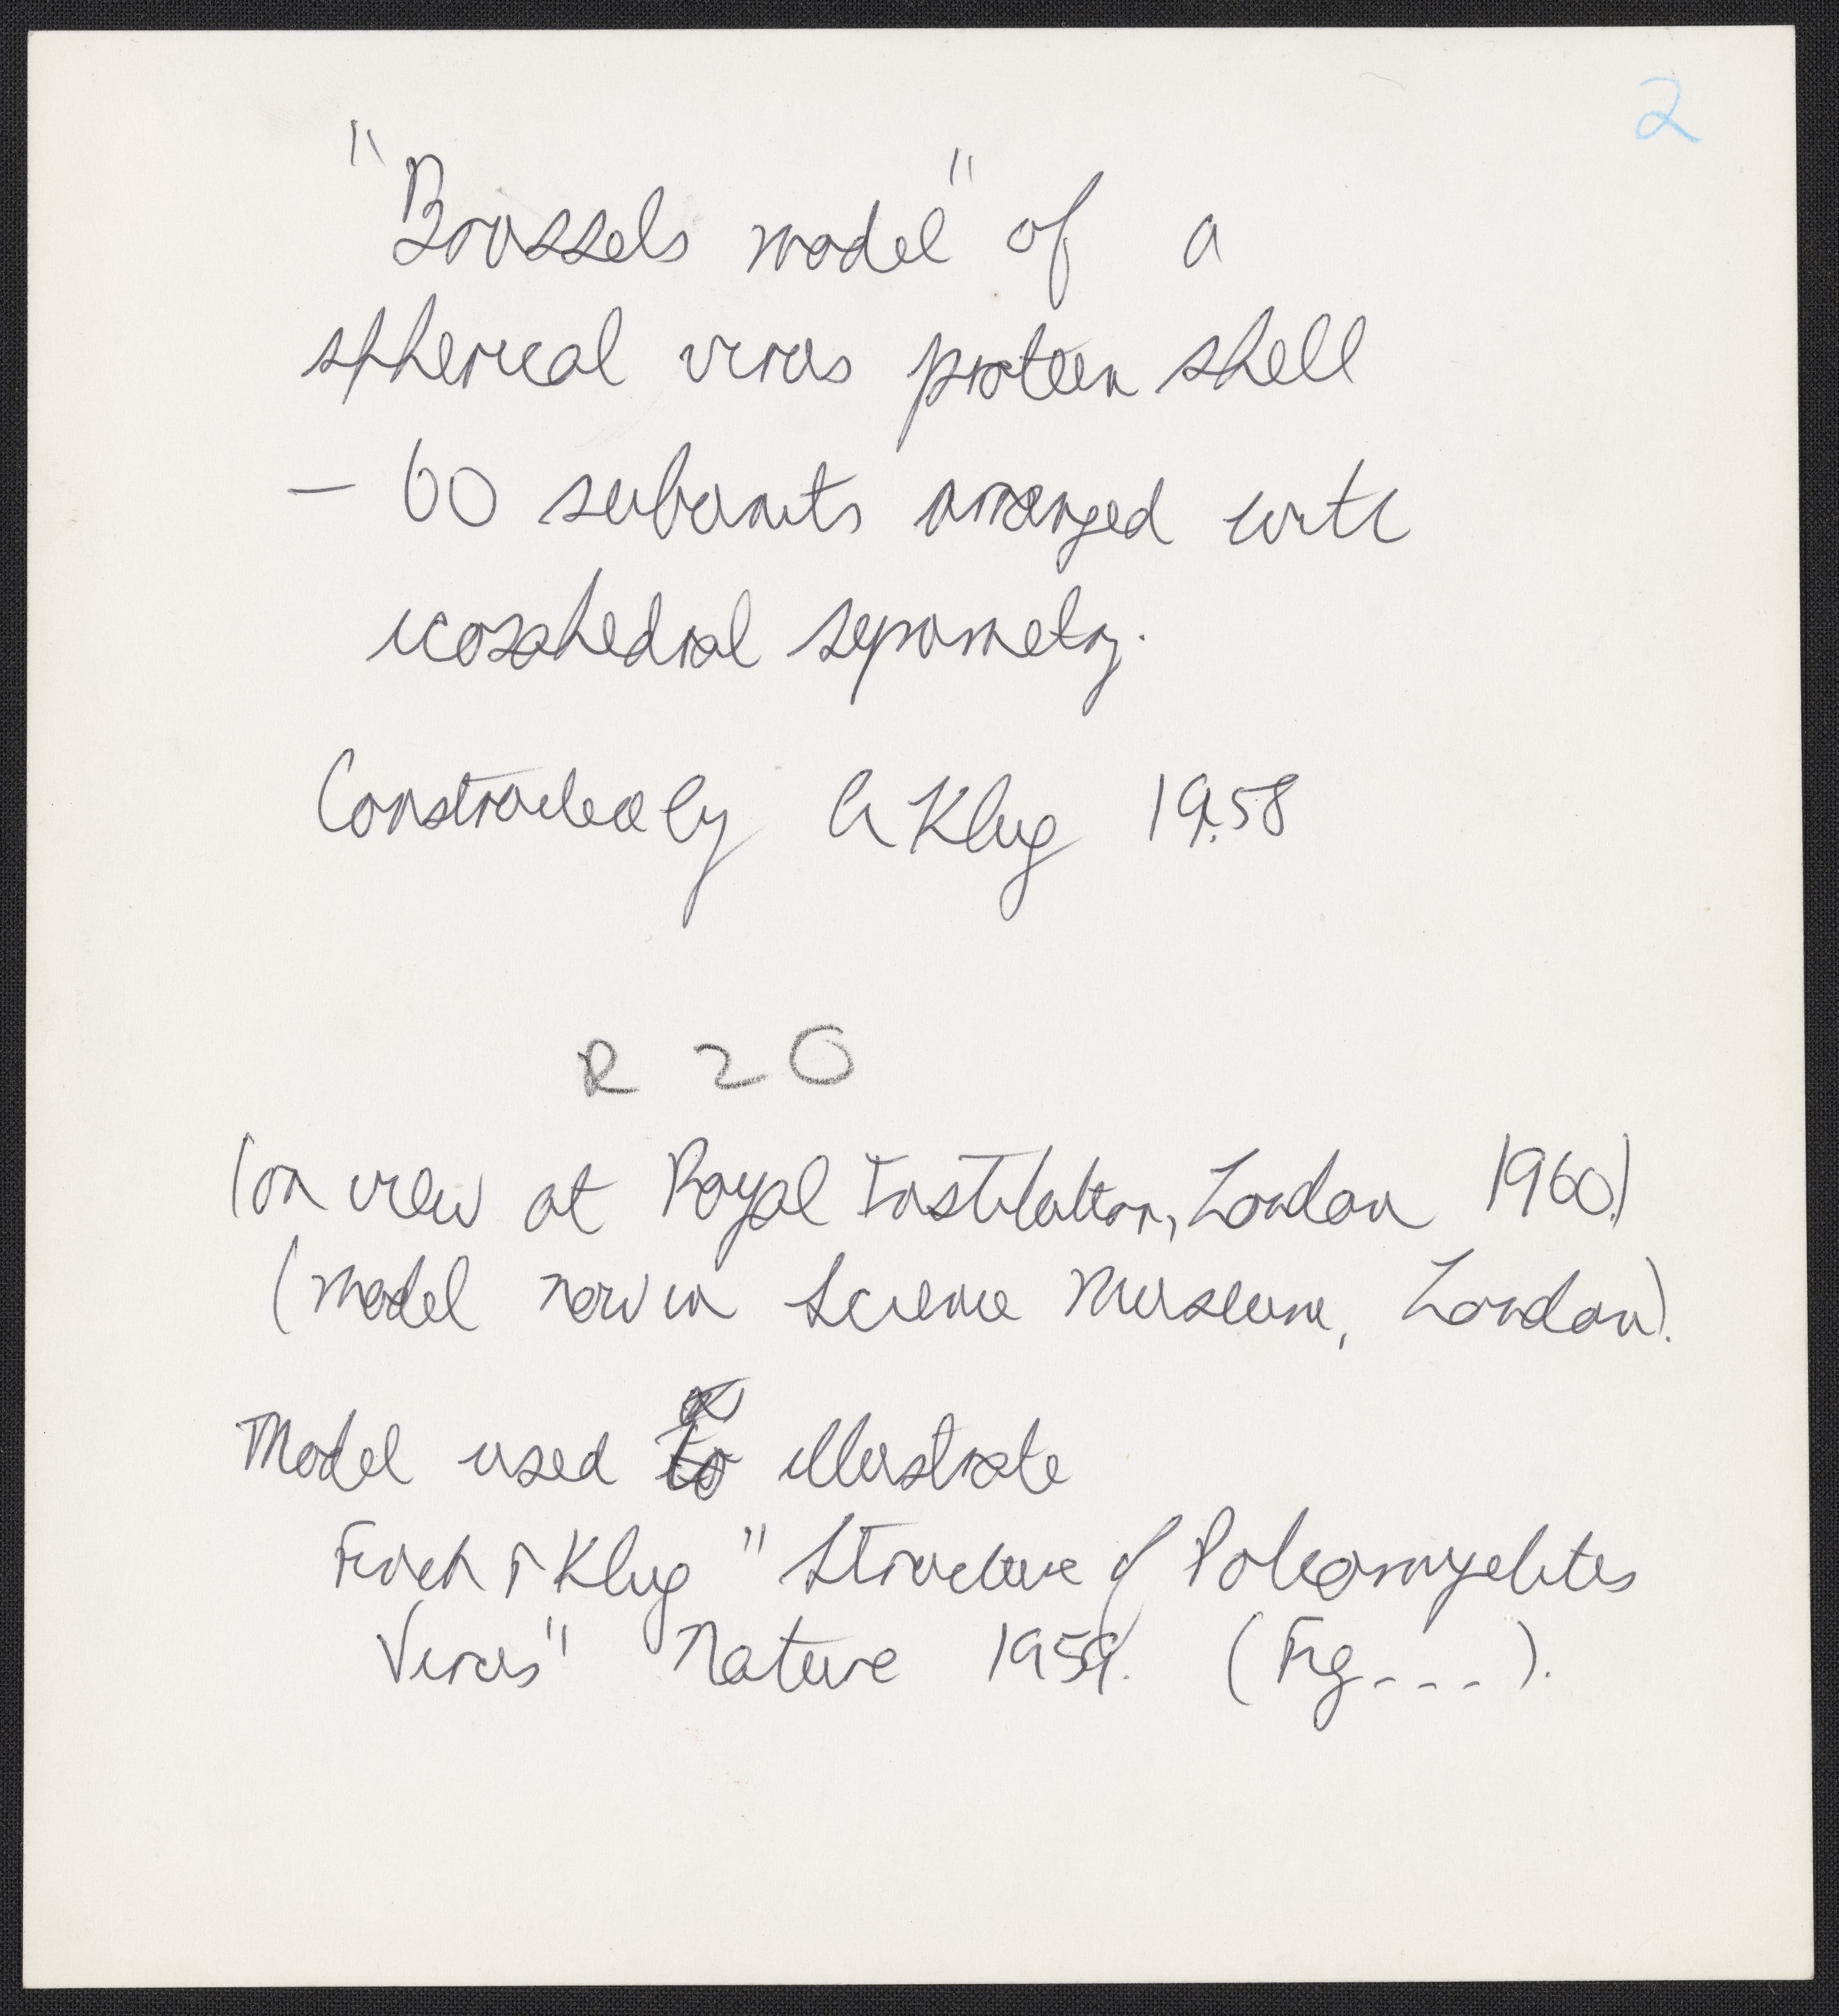 2
"Brussels model" of a
spherical virus protein shell
— 60 subunits arranged with
icosahedral symmetry.
Constructed by A Klug 1958
R 20
(on view at Royal Institution, London 1960)
(Model now in Science Museum, London).
Model used to illustrate
Finch & Klug "Structure of Poliomyelitis
Virus" Nature 1959. (Fig - - - ).